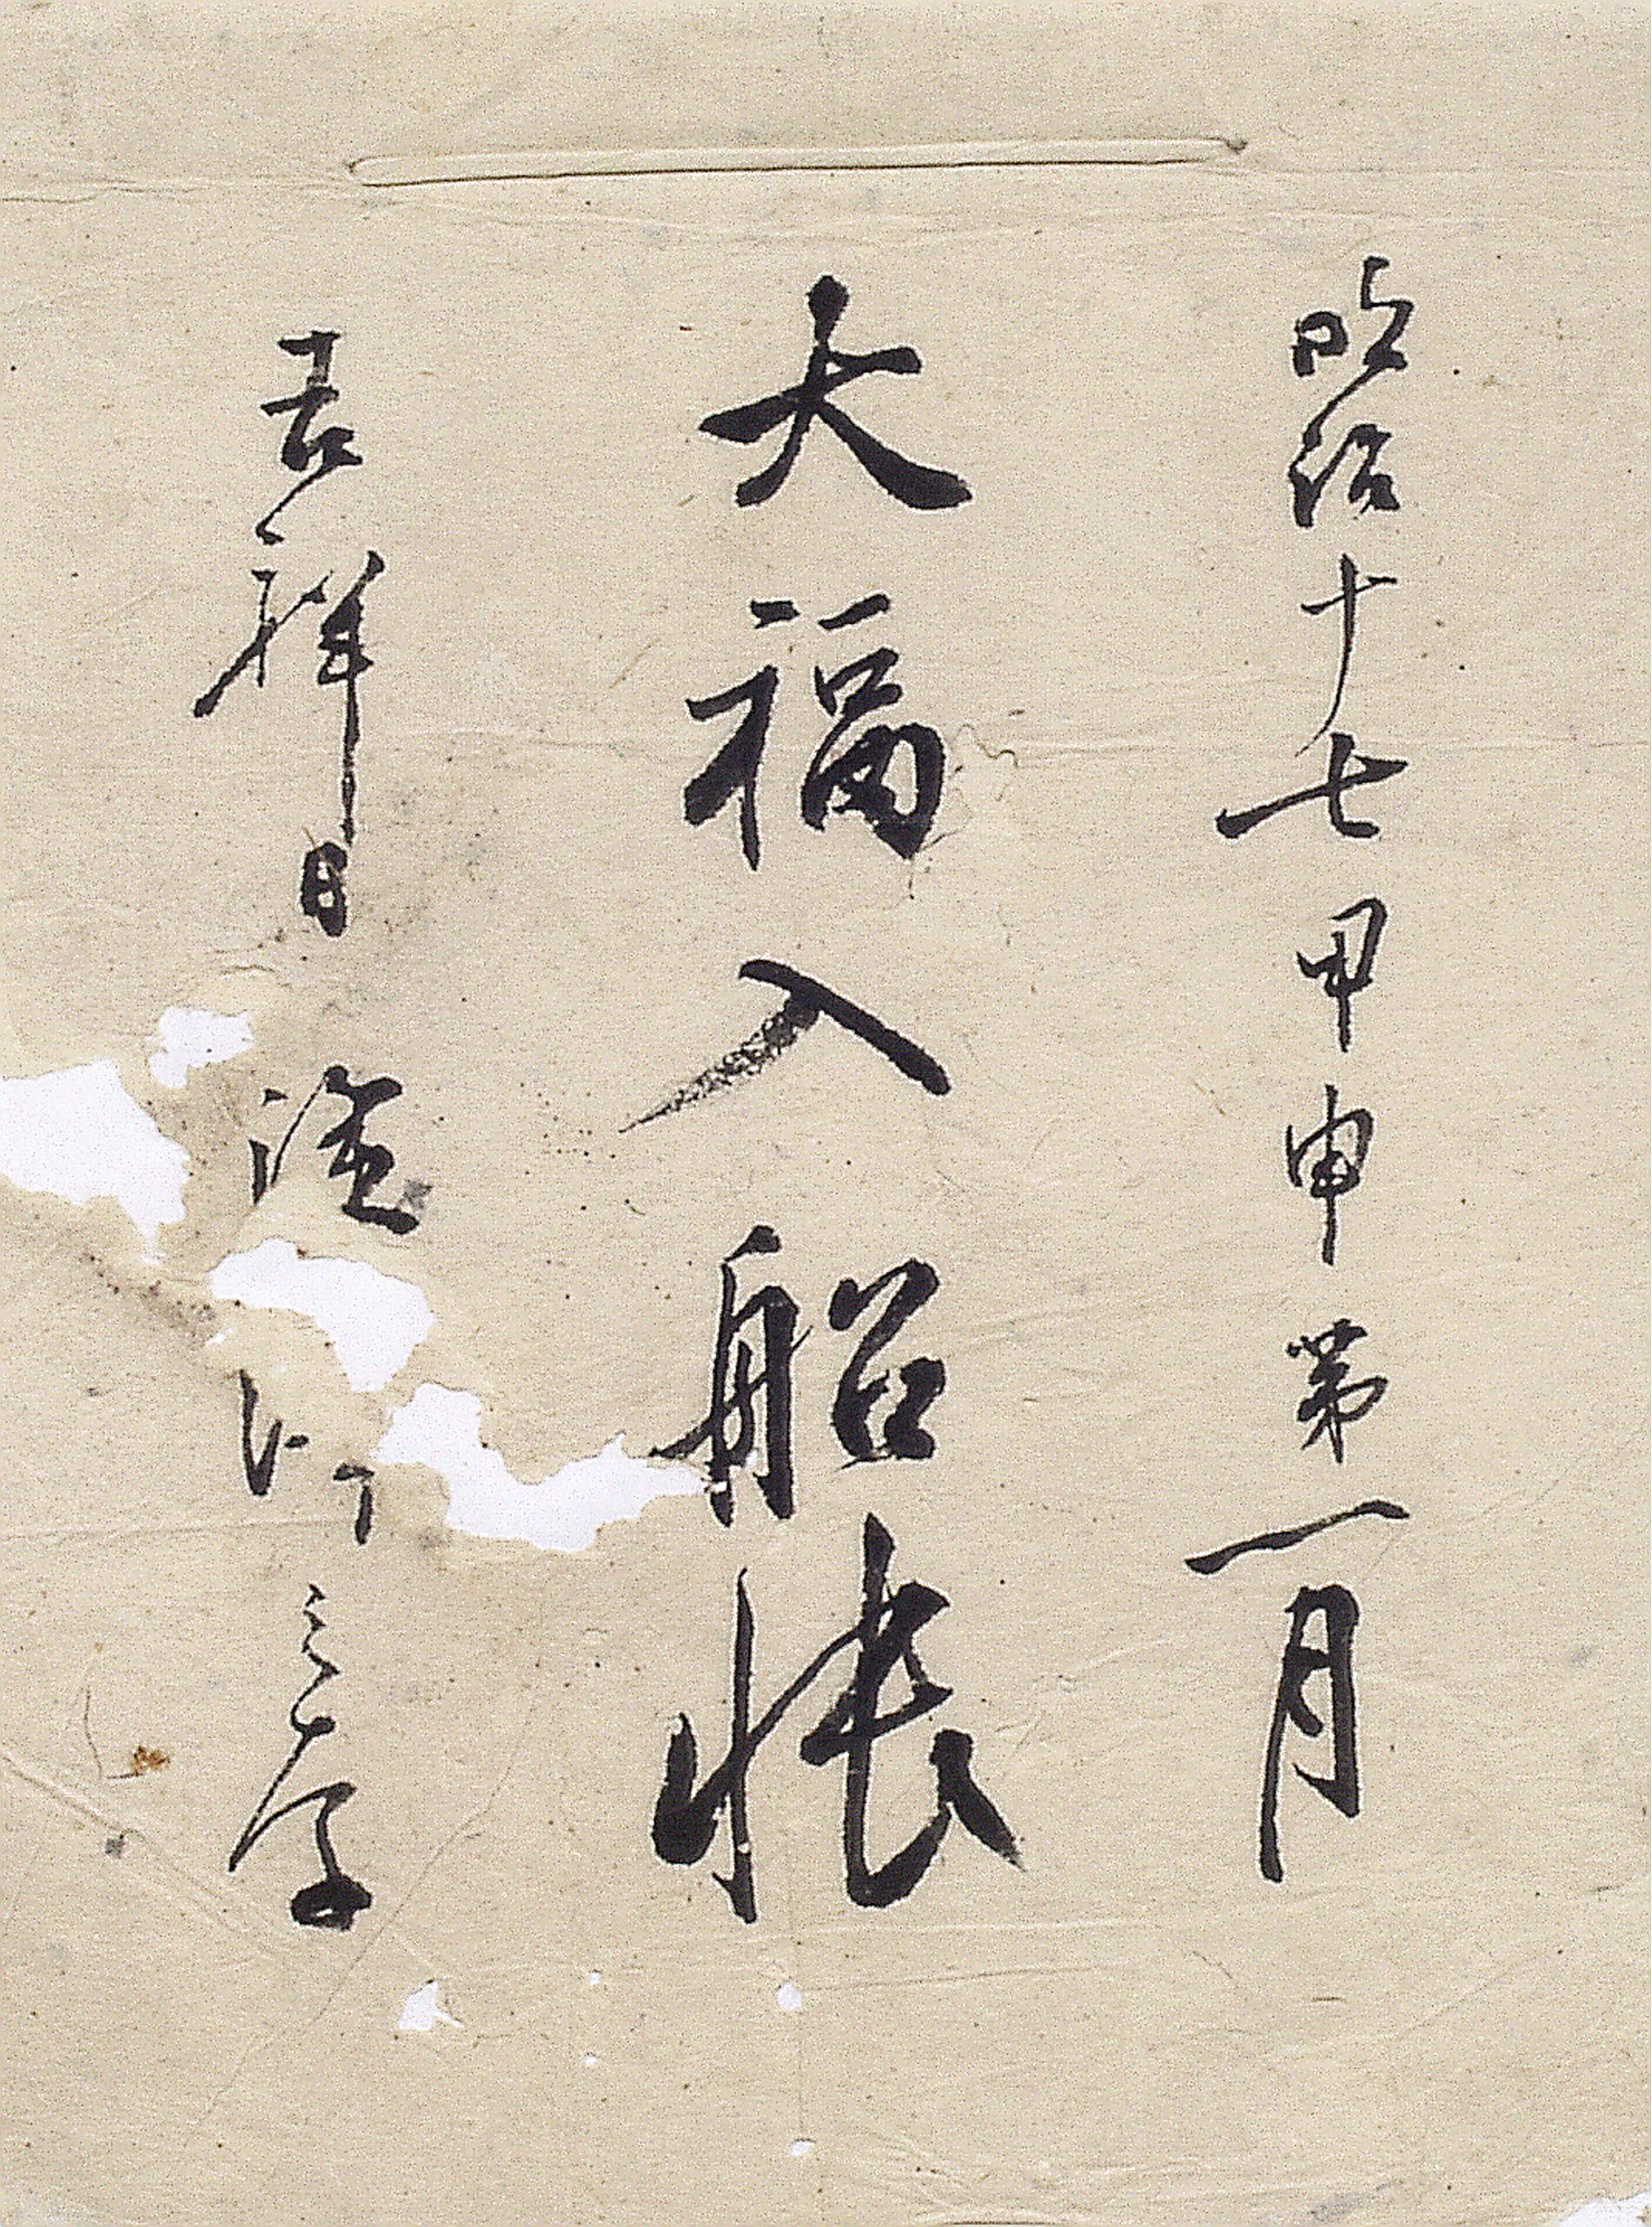 明治十七甲申第一月
大福入船帳
吉祥日